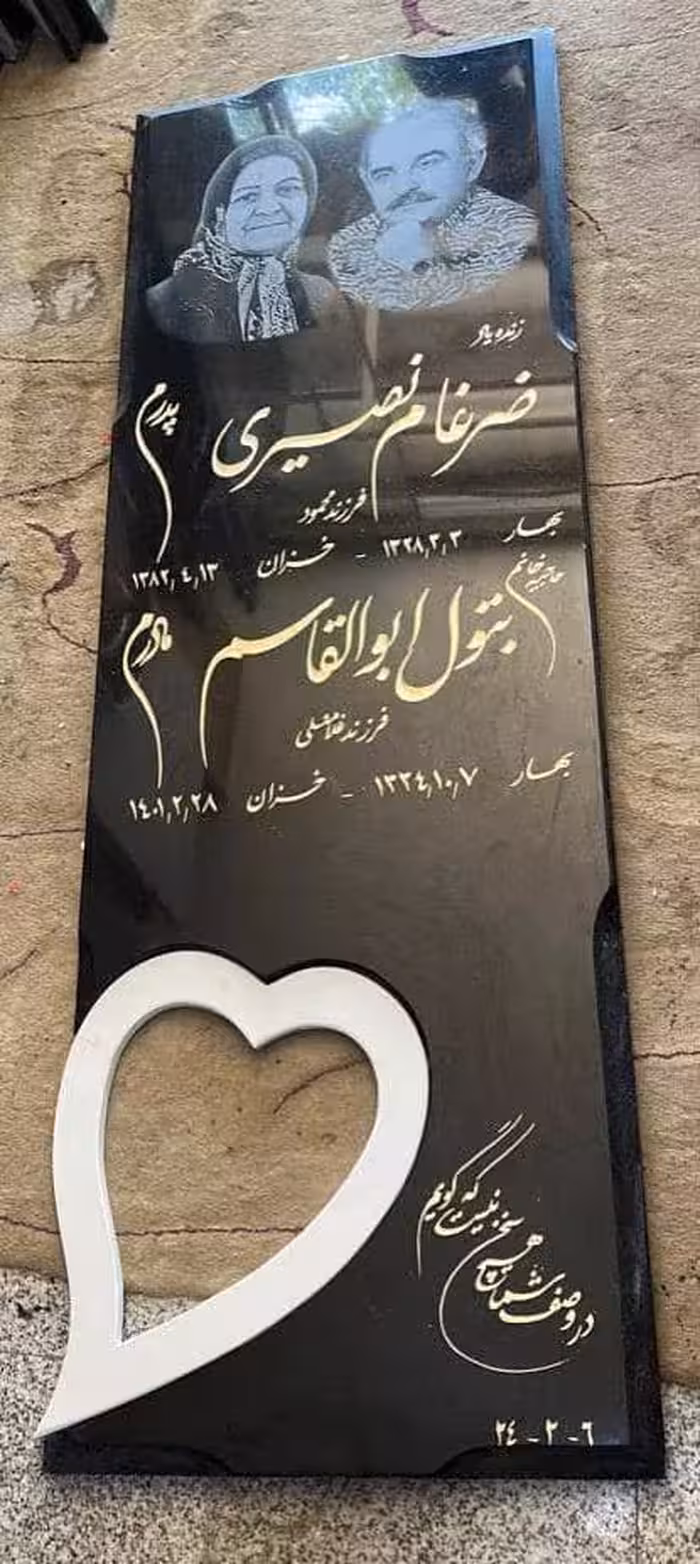 زنده یاد
ضرغام نصیری
پدرم
فرزند محمود
بهار ۱۳۲۸,۳,۳ - خزان ۱۳۸۲,٤,۱۳
حاجیه خانم
بتول ابوالقاسم
مادرم
فرزند غلامعلی
بهار ۱۳۲٤,۱۰,۷ - خزان ۱٤۰۱,۲,۲۸
در وصف شما هیچ سخن نیست که گویم
۲٤ - ۲ - ٦